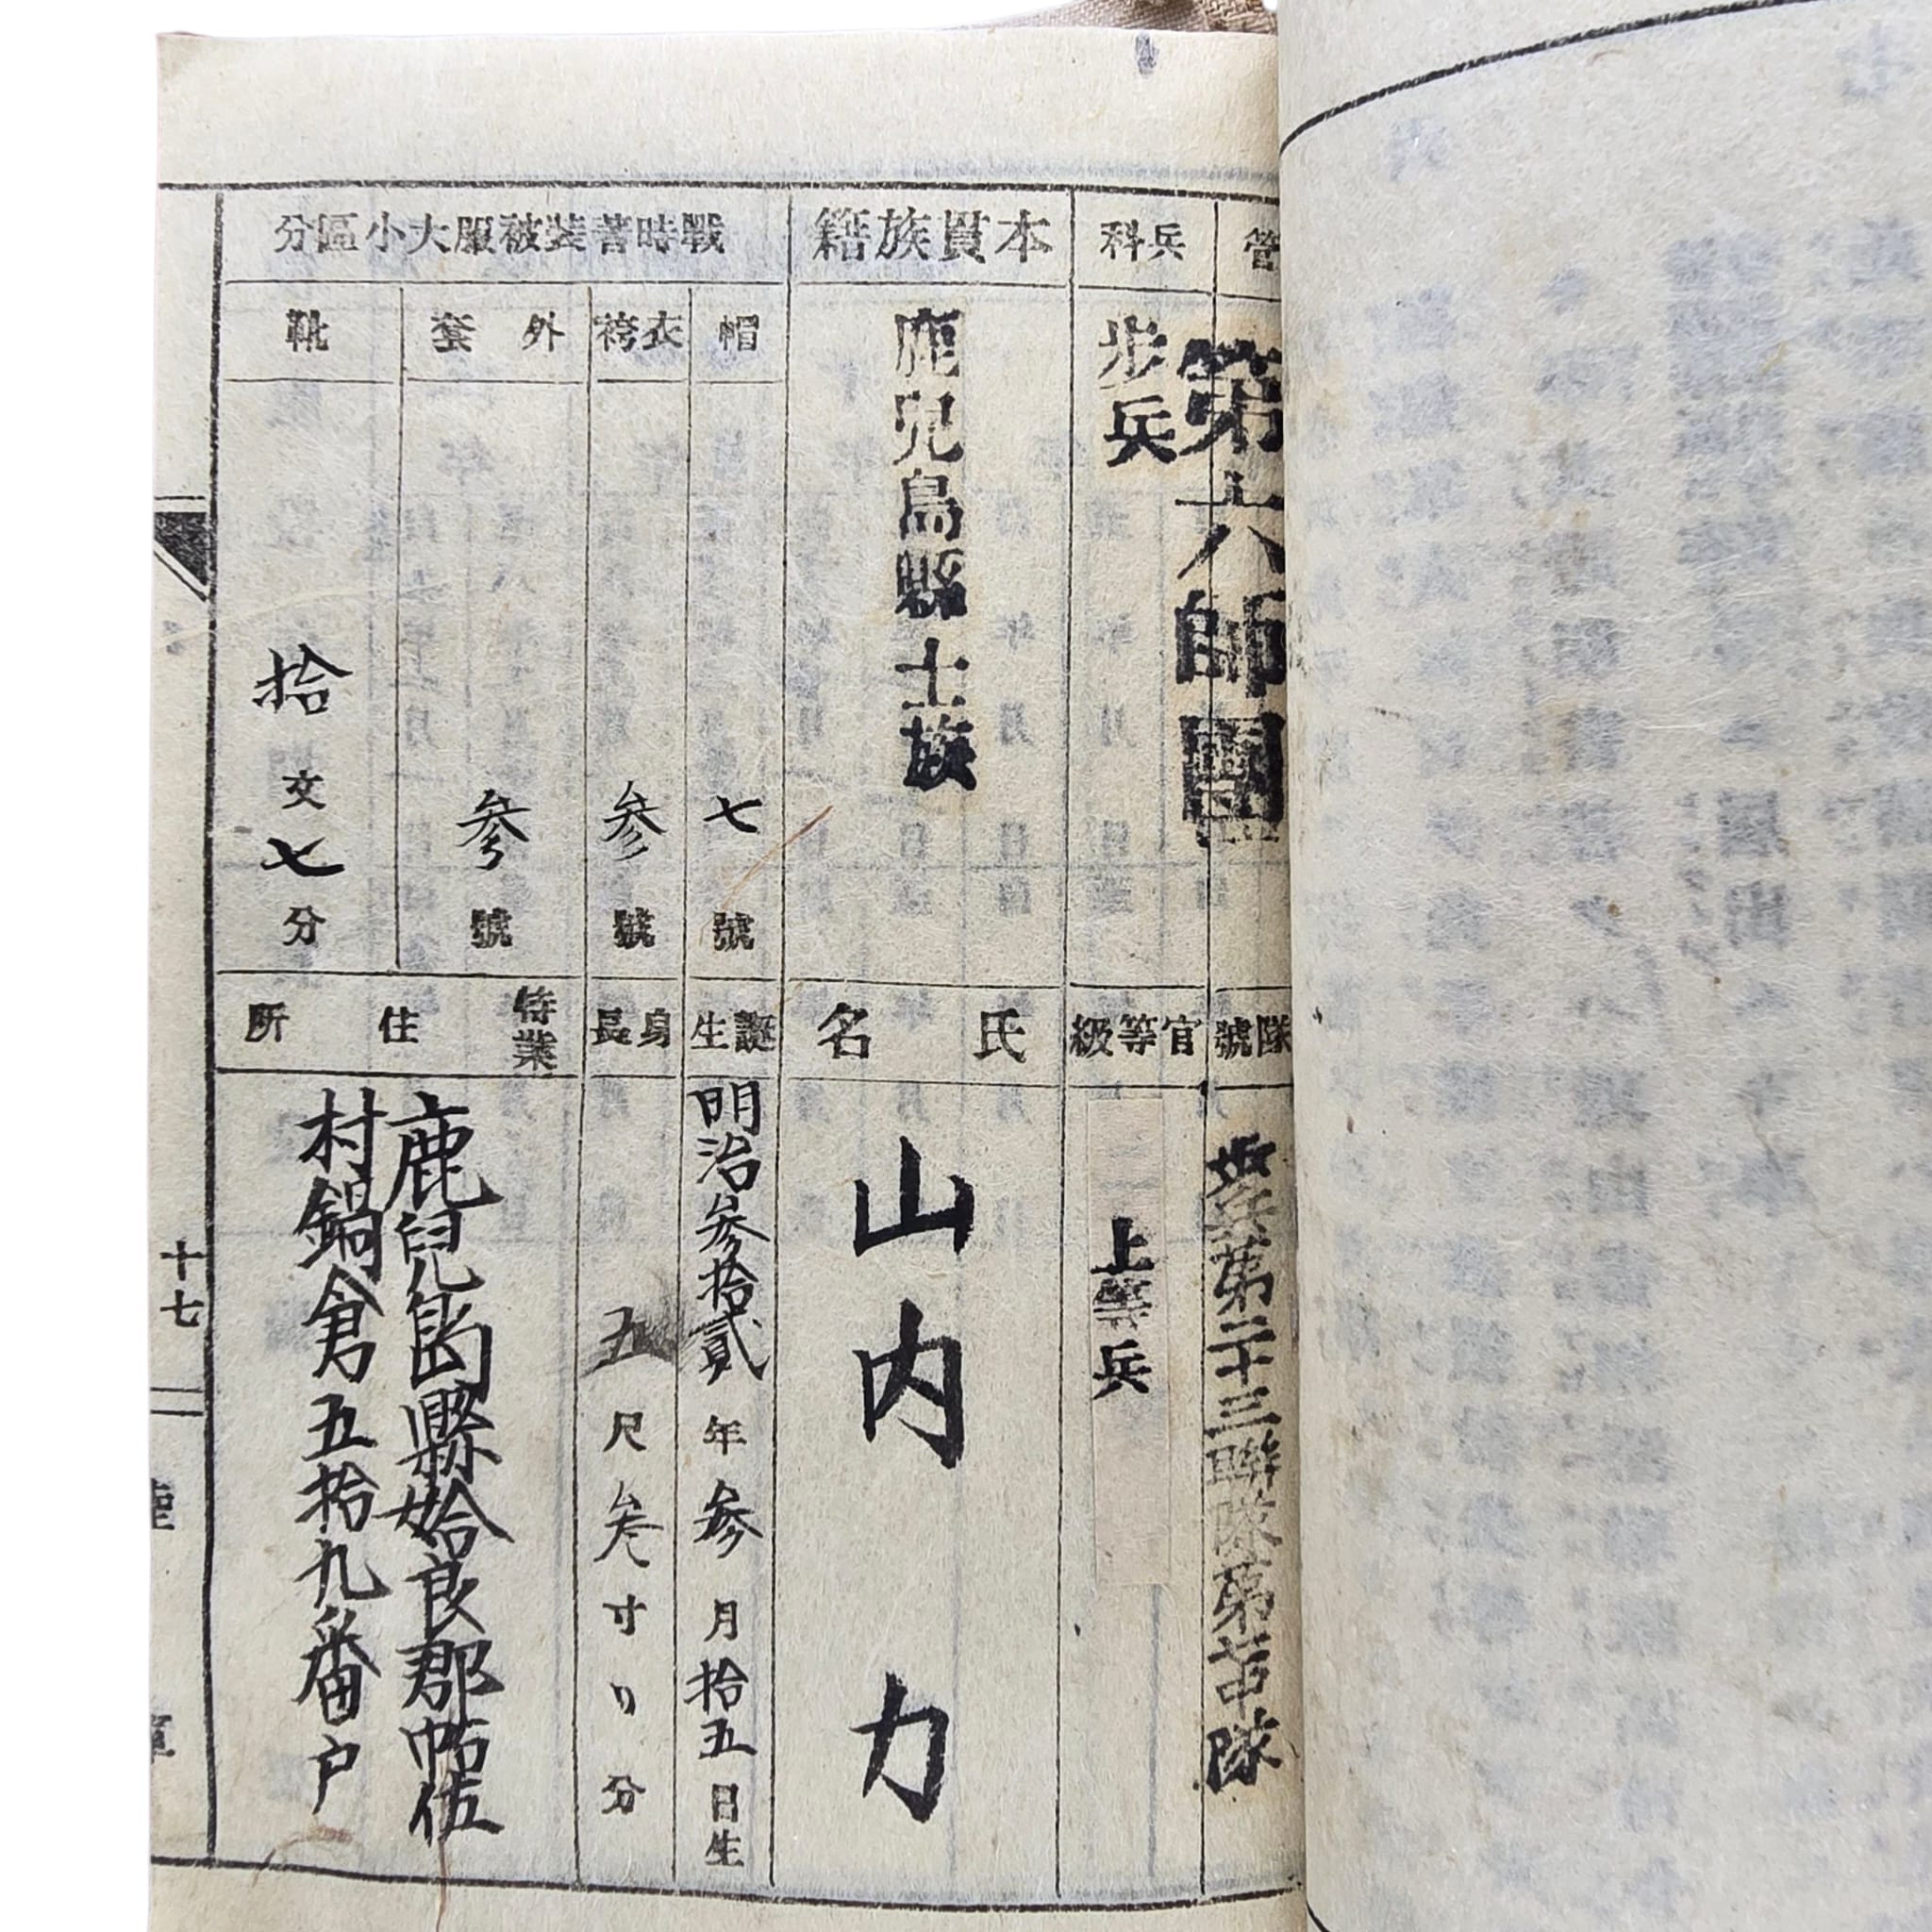 管
第六師團
隊號
步兵第二十三聯隊第
中隊
兵科
步兵
官等級
上等兵
本貫族籍
鹿兒島縣士族
氏名
山内力
戰時著裝被服大小區分
帽
七號
誕生
明治參拾貳年參月拾五日生
衣袴
參號
身長
五尺參寸リ分
外套
參號
靴
拾文七分
特業
住所
鹿兒島縣姶良郡帖佐
村鍋倉五拾九番戸
十七
陸
軍